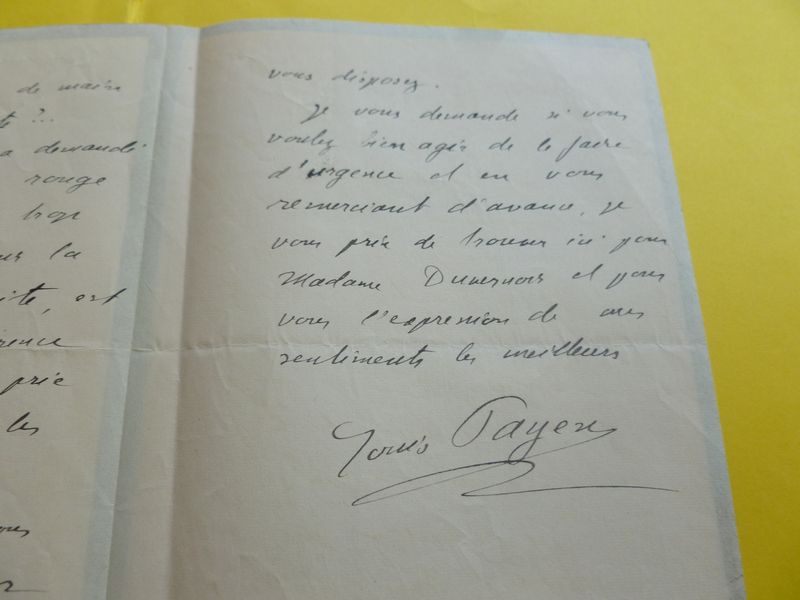 de maire
te ?..
a demandé
rouge
trop
sur la
ite, est
rence
prie
les
vous disposez.
Je vous demande si vous
voulez bien agir de le faire
d'urgence et en vous
remerciant d'avance, je
vous prie de trouver ici pour
Madame Duvernois et pour
vous l'expression de mes
sentiments les meilleurs
Louis Payen